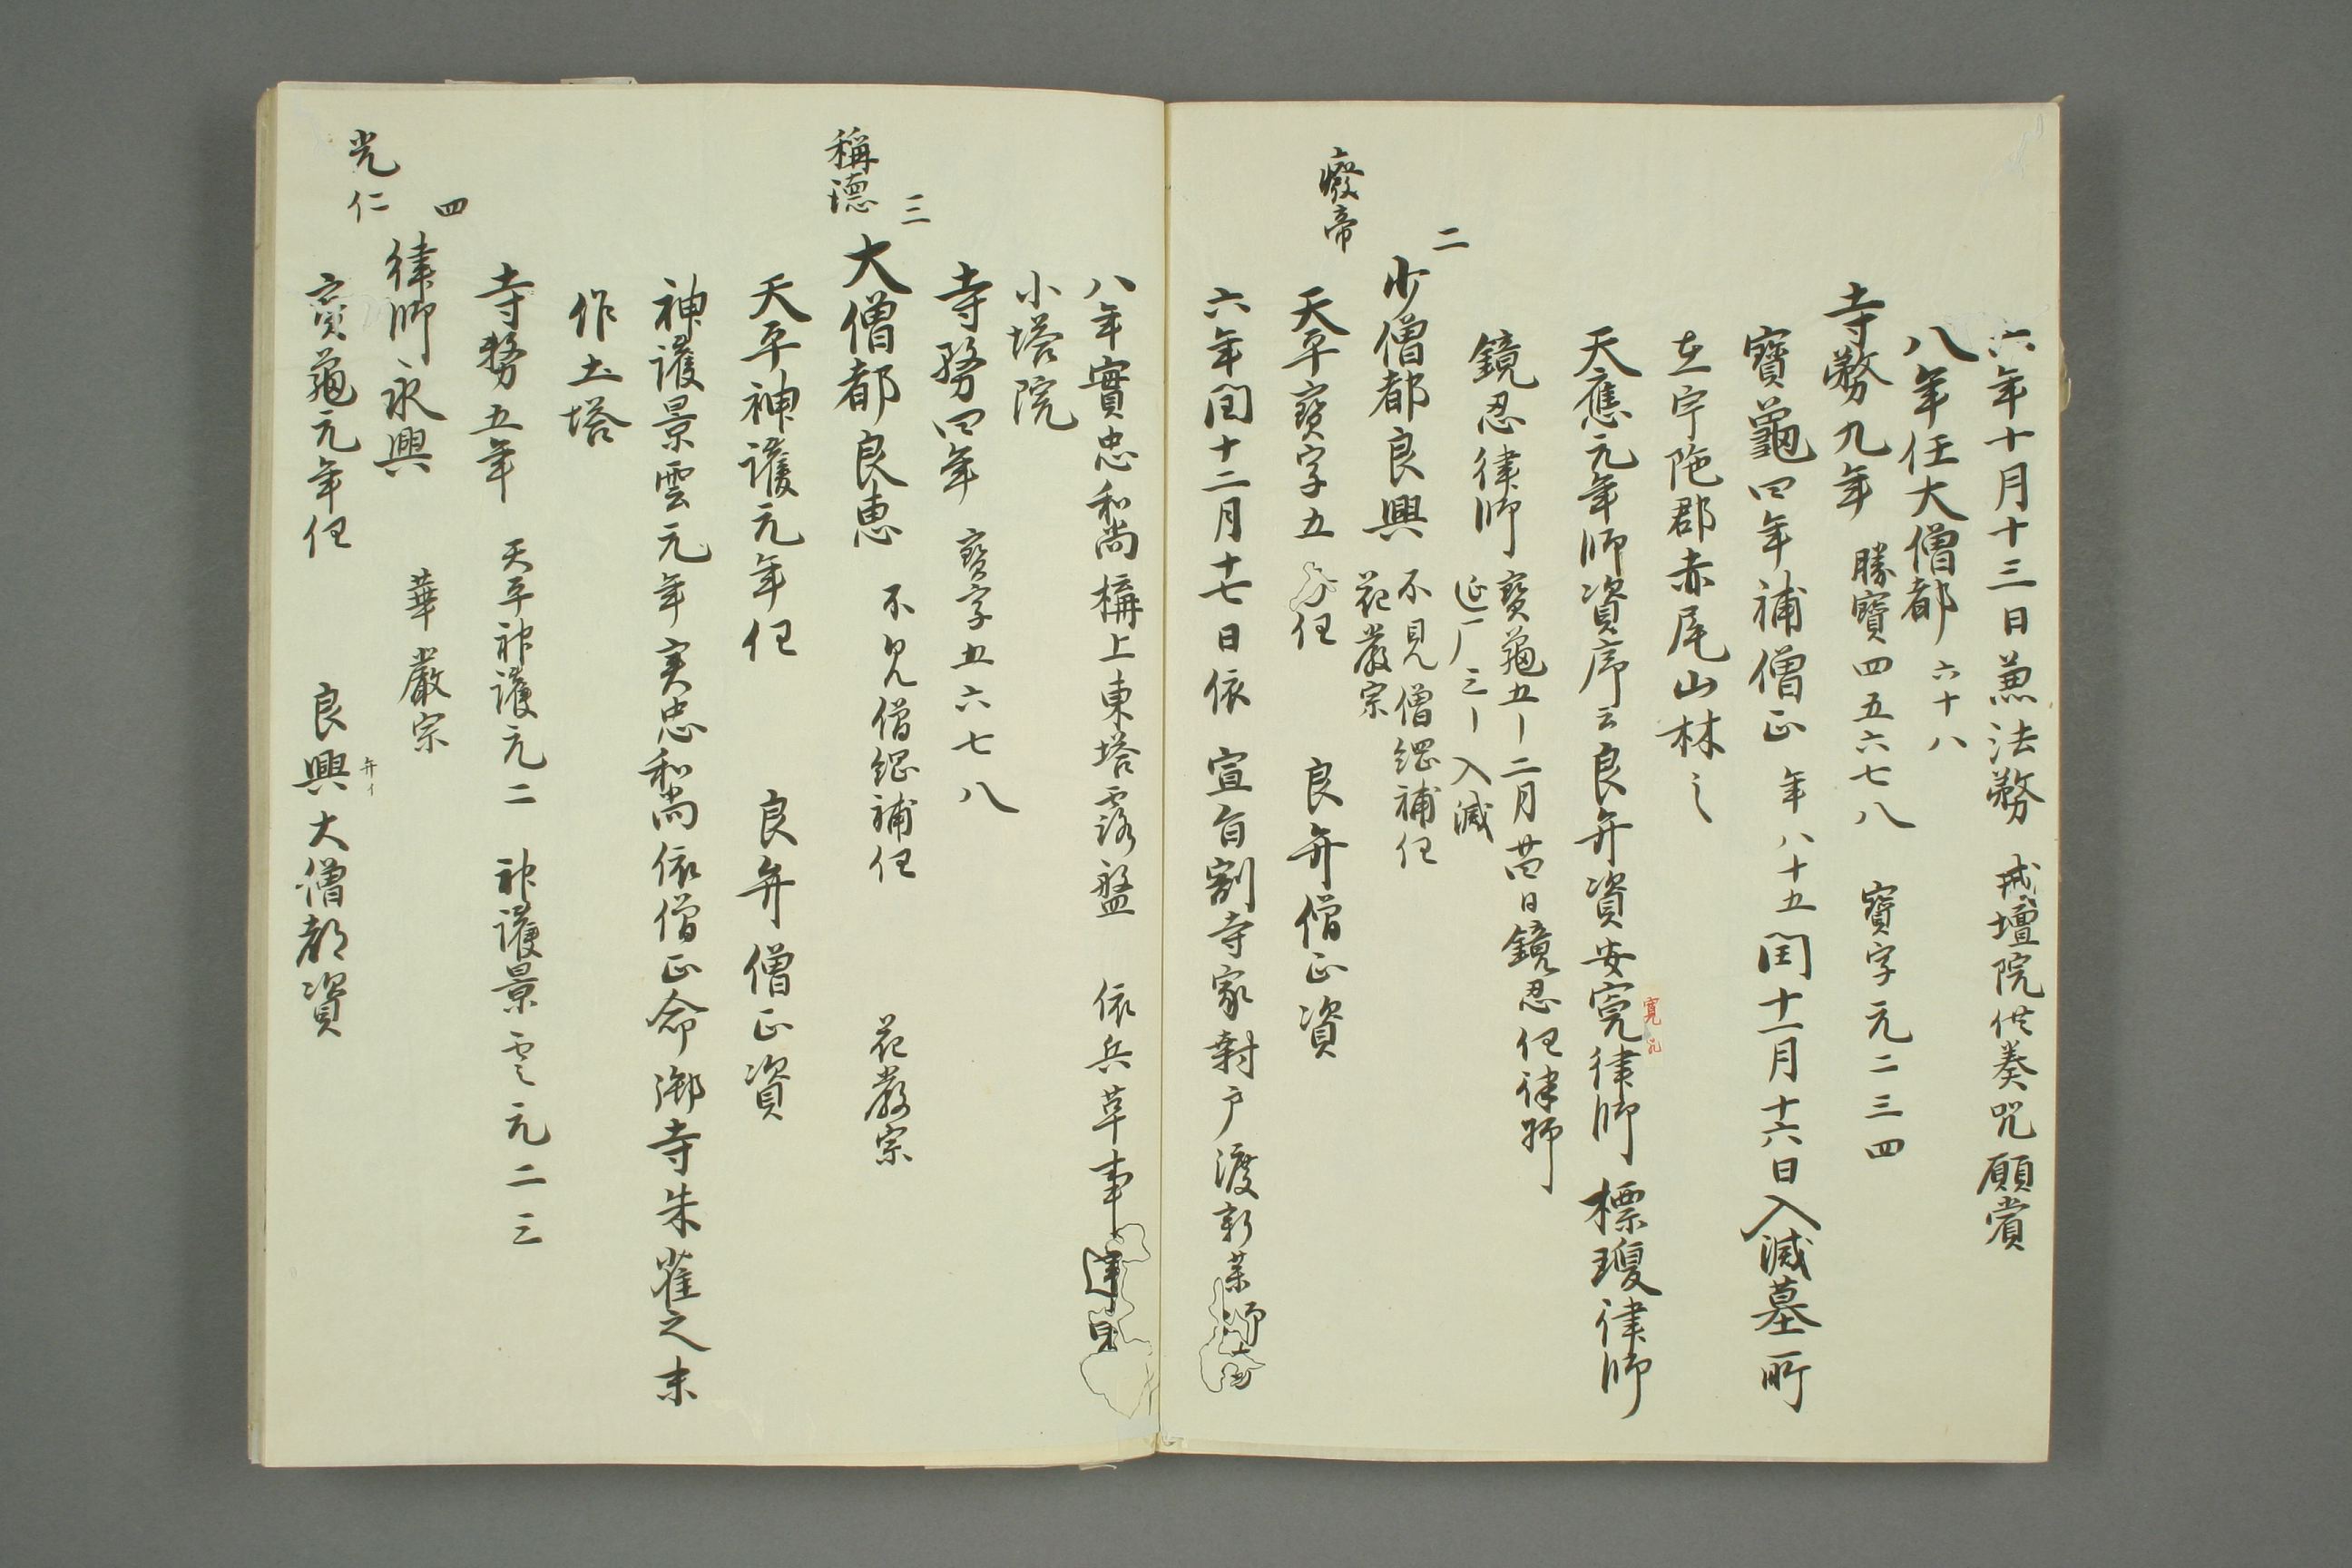 六年十月十三日兼法務 戒壇院供養咒願賞
八年任大僧都 六十八
寺務九年 勝寶四五六七八 寶字元二三四
寶龜四年補僧正 年八十五 閏十一月十六日入滅墓所
在宇陁郡赤尾山林之
天應元年師資序云良弁資安寛律師 標瓊律師
寛
鏡忍律師 寶龜五〡二月廿四日鏡忍任律師
延厂三〡入滅
二
少僧都良興 不見僧綱補任
花嚴宗
廢帝
天平寶字五 任 良弁僧正資
六年閏十二月十七日依 宣旨割寺家封戸渡新薬師寺
八年實忠和尚構上東塔露盤 依兵革事
小塔院
寺務四年 寶字五六七八
三
大僧都良惠 不見僧綱補任 花嚴宗
稱德
天平神護元年任 良弁僧正資
神護景雲元年実忠和尚依僧正命御寺朱雀之末
作土塔
寺務五年 天平神護元二 神護景雲元二三
四
律師永興 華嚴宗
光仁
寶龜元年任 良興大僧都資
弁イ